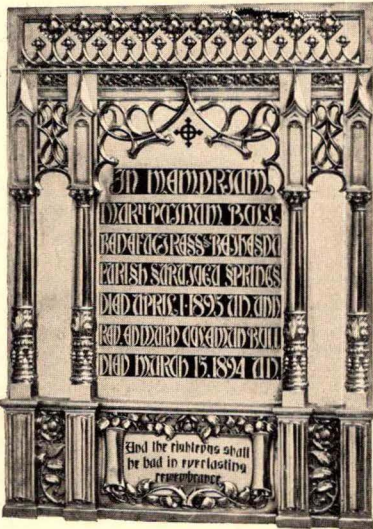 IN MEMORIAM
MARY PUTNAM BULL
BENEFACTRESS OF BETHESDA
PARISH SARATOGA SPRINGS
DIED APRIL 1 · 1895 A.D. AND
REV EDWARD BULL
DIED MARCH 15. 1894 A.D.
And the righteous shall
be had in everlasting
remembrance